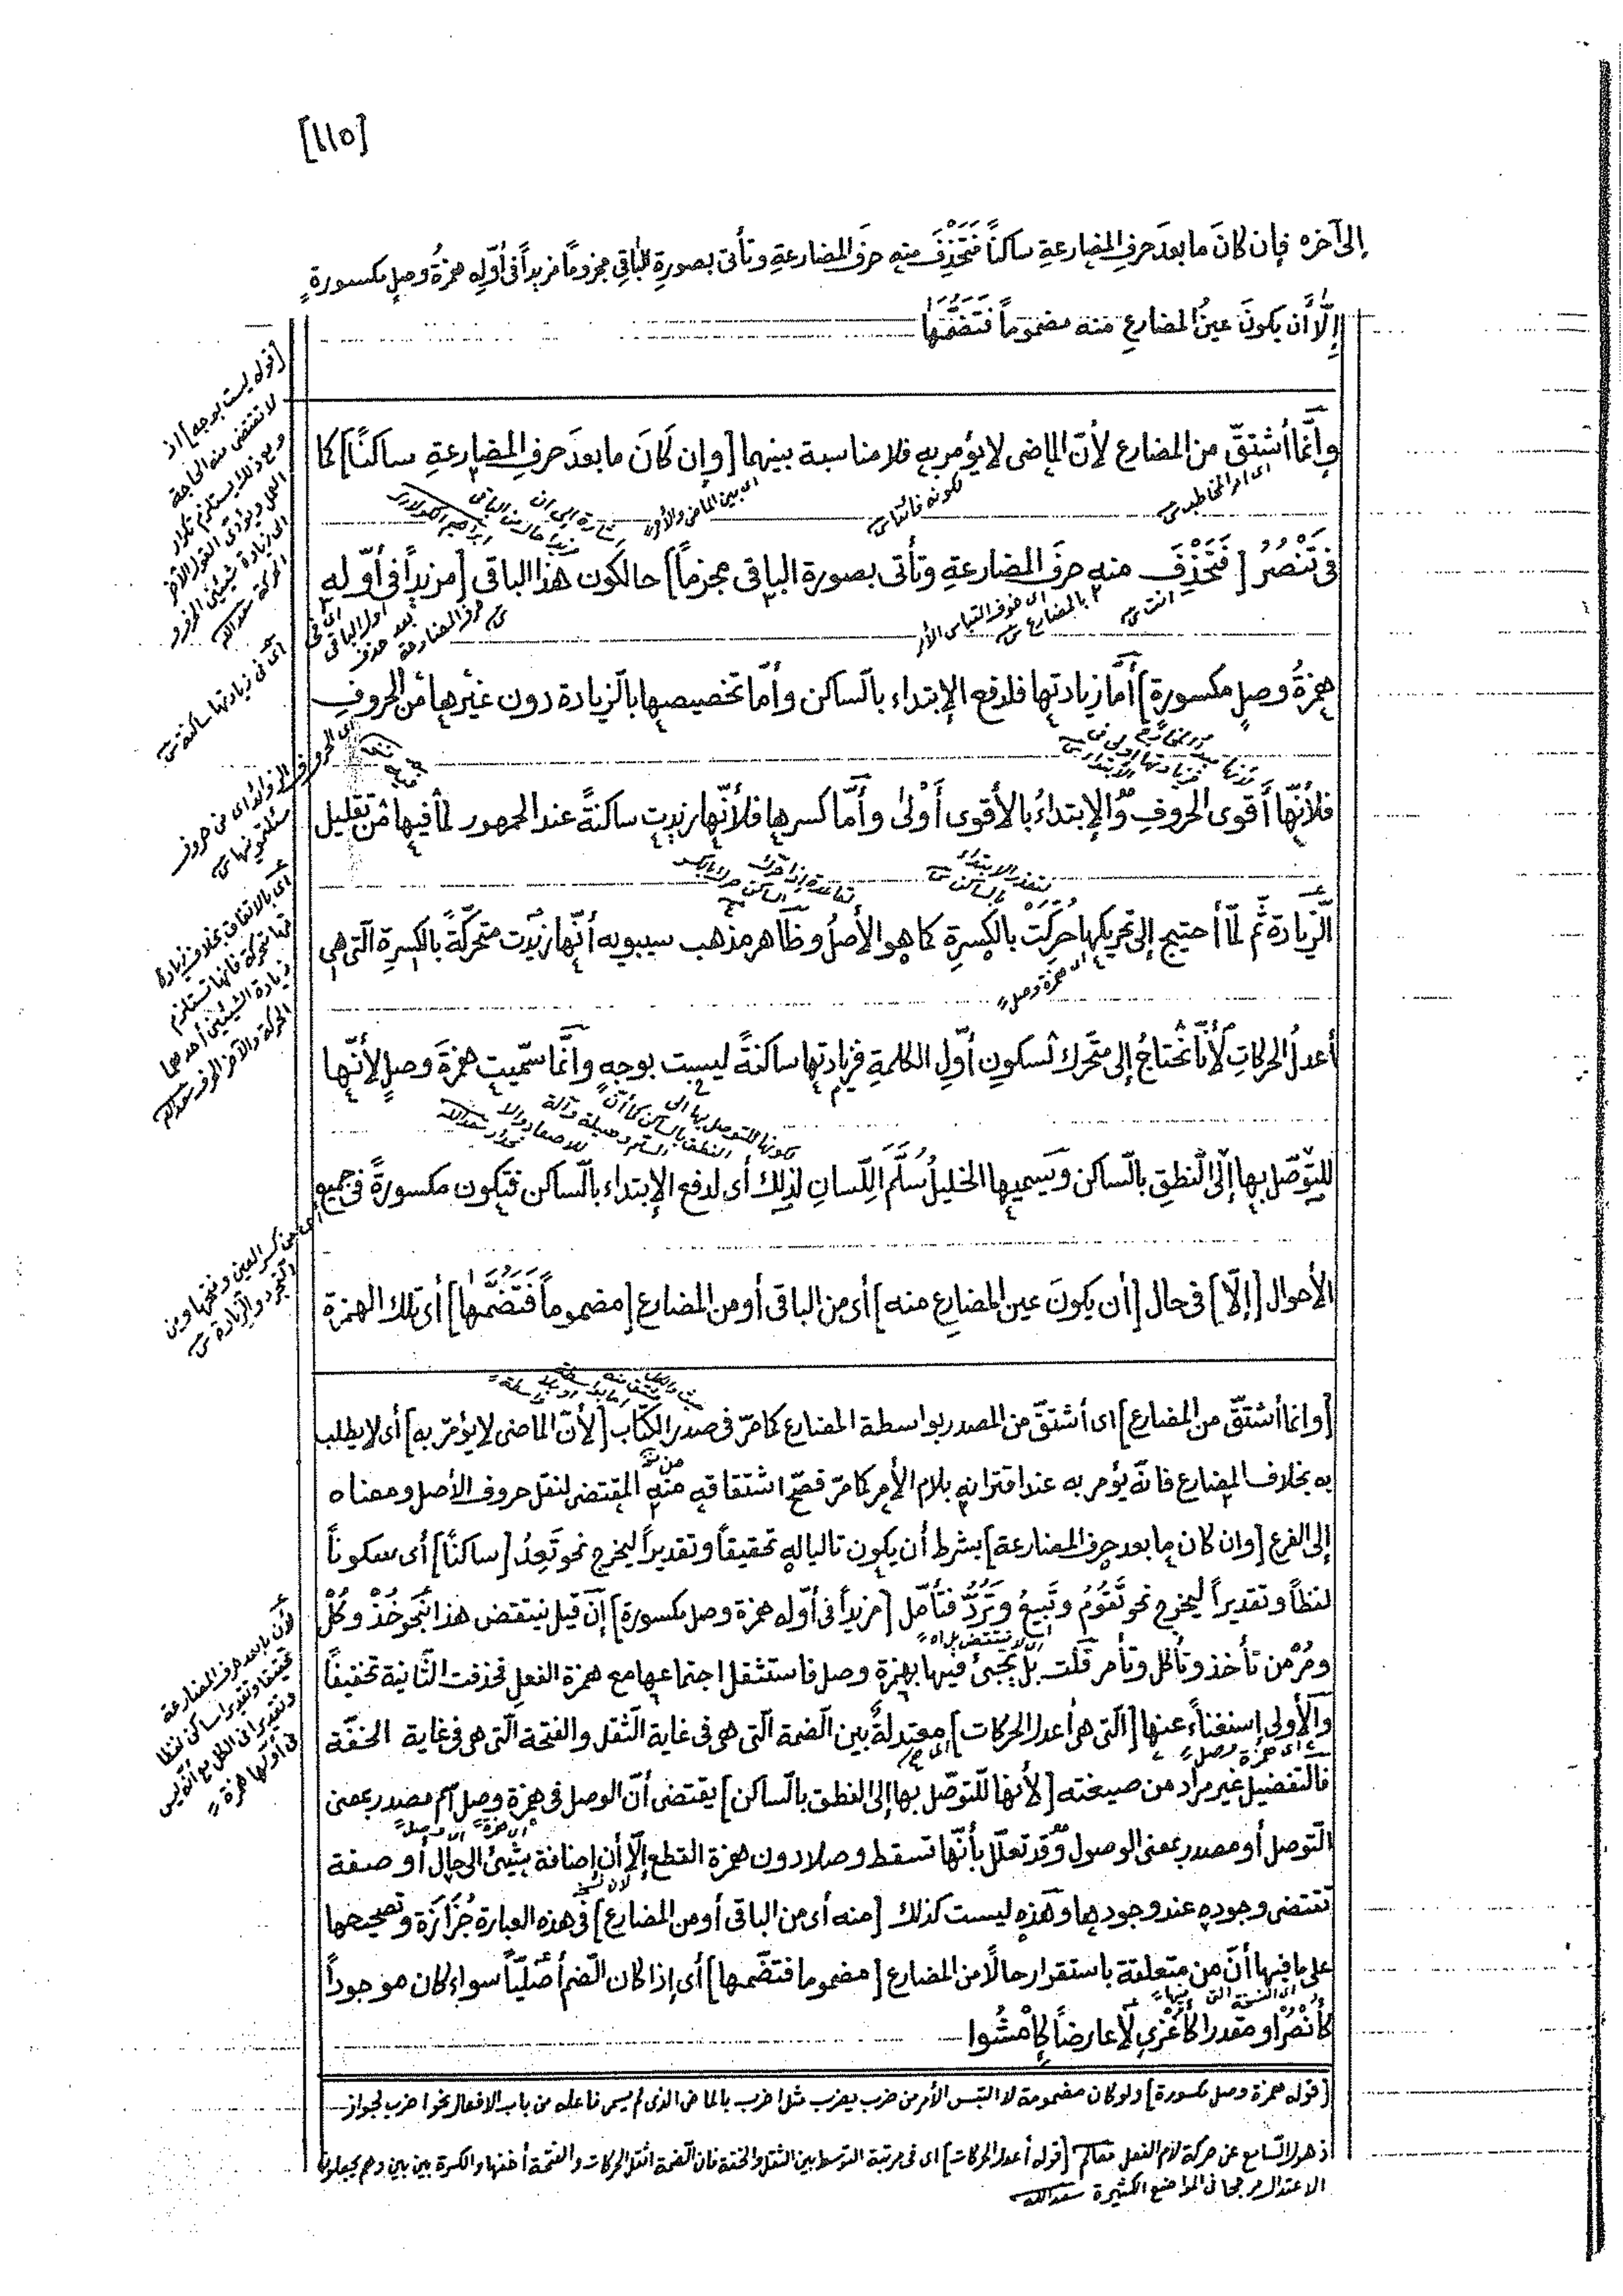 [١١٥]
إلى آخره فإن كانَ ما بعدَ حرفِ المضارعةِ ساكناً فَتَحْذِفُ منه حرفَ المضارعةِ وتأتى بصورةِ الباقِي مجزوماً مزيداً فى أوّلِه همزةُ وصلٍ مكسورةٍ
إلّا أن يكونَ عينُ المضارعِ منه مضموماً فَتَضُمَّهَا
وإنّما أشتقّ من المضارع لأنّ الماضى لا يؤمر به فلا مناسبة بينهما [وإن كَانَ ما بعدَ حرفِ المضارعةِ ساكنًا] كما
اى امر المخاطب
لكونه فائتا
اى بين الماضى والأمر
فى تَنْصُرُ [فَتَحْذِفُ منه حرفَ المضارعةِ وتأتى بصورة الباقى مجزماً] حال كون هذا الباقى [مزيداً فى أوّله
انت
همزةُ وصلٍ مكسورة] أمّا زيادتها فلدفع الإبتداء بالسّاكن وأمّا تخصيصها بالزيادة دون غيرها من الحروفِ
فلأنّها أقوى الحروفِ والإبتداءُ بالأقوى أَوْلىٰ وأمّا كسرها فلأنّها زيدت ساكنةً عند الجمهور لما فيها من تقليل
لتعذر الابتداء بالساكن
الزّيادة ثمّ لمّا أحتيج إلى تحريكها حُرّكَتْ بالكسرةِ كما هو الأصلُ وظاهر مذهب سيبويه أنّها زيدت متحرّكةً بالكسرةِ الّتى هى
اى همزة وصل
أعدلُ الحركاتِ لأنّا نحتاجُ إلى متحرّك لسكونِ أوّلِ الكلمةِ فزيادتها ساكنةً ليست بوجهٍ وإنّما سمّيت همزةَ وصلٍ لأنّها
للتّوصّل بها إلى النّطقِ بالسّاكن ويسميها الخليلُ سُلَّمَ اللِّسانِ لذلك أى لدفع الإبتداء بالسّاكن فتكون مكسورةً فى جميع
الأحوال [إلّا] فى حال [أن يكونَ عين المضارع منه] أى من الباقى أو من المضارع [مضموماً فَتَضُمَّها] أى تلك الهمزة
[وانما أشتقّ من المضارع] اى أشتقّ من المصدر بواسطة المضارع كما مرّ فى صدر الكتاب [لأنّ الماضى لا يؤمر به] أى لا يطلب
به بخلاف المضارع فانّه يؤمر به عند اقترانه بلام الأمر كما مرّ فصحّ اشتقاقه منه المقتضى لنقل حروف الأصل ومعناه
إلى الفرع [وان كان ما بعد حرف المضارعة] بشرط أن يكون تاليا له تحقيقاً وتقديراً ليخرج نحو تَعِدُ [ساكنًا] أى سكوناً
لفظاً وتقديراً ليخرج نحو تَقُومُ وتَبِيعُ وتَرُدُّ فتأمّل [مزيداً فى أوّله همزة وصل مكسورة] إن قيل ينتقض هذا بنحو خُذْ وكُلْ
ومُرْ من تأخذ وتأكل وتأمر قلت بل يجيئ فيها بهمزة وصل فاستثقل اجتماعها مع همزة الفعل فحذفت الثّانية تخفيفاً
والأولى إستغناءً عنها [الّتى هى أعدل الحركات] معتدلةٌ بين الضمة الّتى هى فى غاية الثقل والفتحة الّتى هى فى غاية الخفّة
فالتفضيل غير مراد من صيغته [لأنها للتّوصّل بها إلى النطق بالسّاكن] يقتضى أنّ الوصل فى همزة وصل اسم مصدر بمعنى
التّوصل أو مصدر بمعنى الوصول وقد تعلّل بأنّها تسقط وصلا دون همزة القطع إلّا أن إضافة شيئ الى حال أو صفة
تقتضى وجوده عند وجودها وهذه ليست كذلك [منه أى من الباقى أو من المضارع] فى هذه العبارة حزازة وتصحيحها
على ما فيها أنّ من متعلقة باستقرار حالاً من المضارع [مضموما فتضّمها] أى إذا كان الضّم أصليّاً سواء كان موجوداً
كأُنْصُرْ او مقدرا كأُغْزِى لا عارضاً كإِمْشُوا
[قوله همزة وصل مكسورة] ولو كان مضمومة لا التبس الأمر من ضرب يضرب مثل اضرب بالماضى الذى لم يسمى فاعله من باب الافعال نحو اضرب لجواز
ذهول السّامع عن حركة لام الفعل [قوله أعدل الحركات] اى فى مرتبة التوسط بين الثقل والخفة فان الضمة اثقل الحركات والفتحة أخفها والكسرة بين بين وهم يجعلون
الاعتدال مرجحا فى المواضع الكثيرة سعد الله
[قوله ليست بوجه] اذ
لا تقتضى منه الحاجة
ومع ذلك يستلزم تكرار
الحركة سعد الله
اى فى زيادتها ساكنة
اى بالاتفاق بخلاف زيادة
زيادة الشيئين أحدهما
الحركة والآخر الحرف سعد الله
لأن ما بعد حرف المضارعة
فى أولها همزة